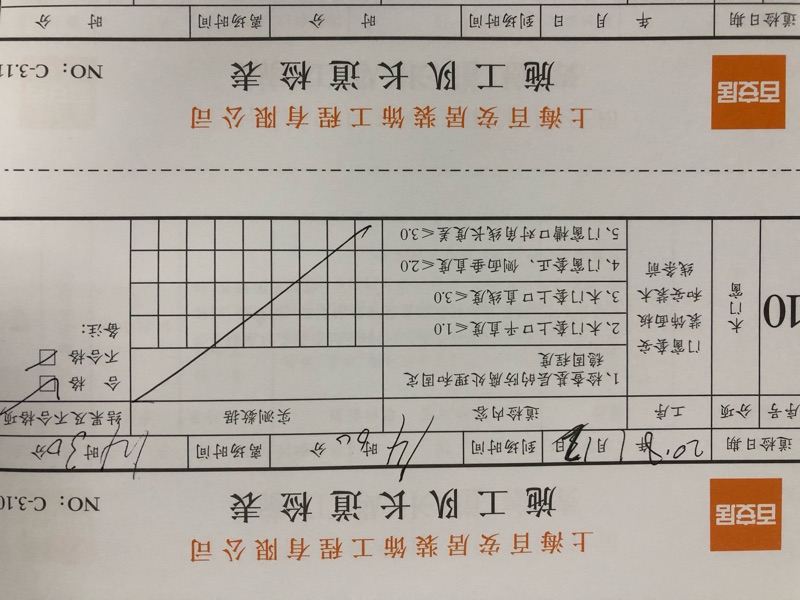 百安居
上海百安居装饰工程有限公司
施工队长道检表
NO：C-3.10
道检日期 2018年1月日 到场时间 14时 分 离场时间 14时30分
序号 分项 工序 道检内容 实测数据 结果及不合格项
10
木门窗
门窗套安
装饰面板
和安装木
线条前
1、检查基层的防腐处理和固定
稳固程度
2、木门套上口平直度≤1.0
3、木门套上口直线度≤3.0
4、门窗套正、侧面垂直度≤2.0
5、门窗槽口对角线长度差≤3.0
合 格
不合格
备注：
百安居
上海百安居装饰工程有限公司
施工队长道检表
NO：C-3.11
道检日期 年 月 日 到场时间 时 分 离场时间 时 分